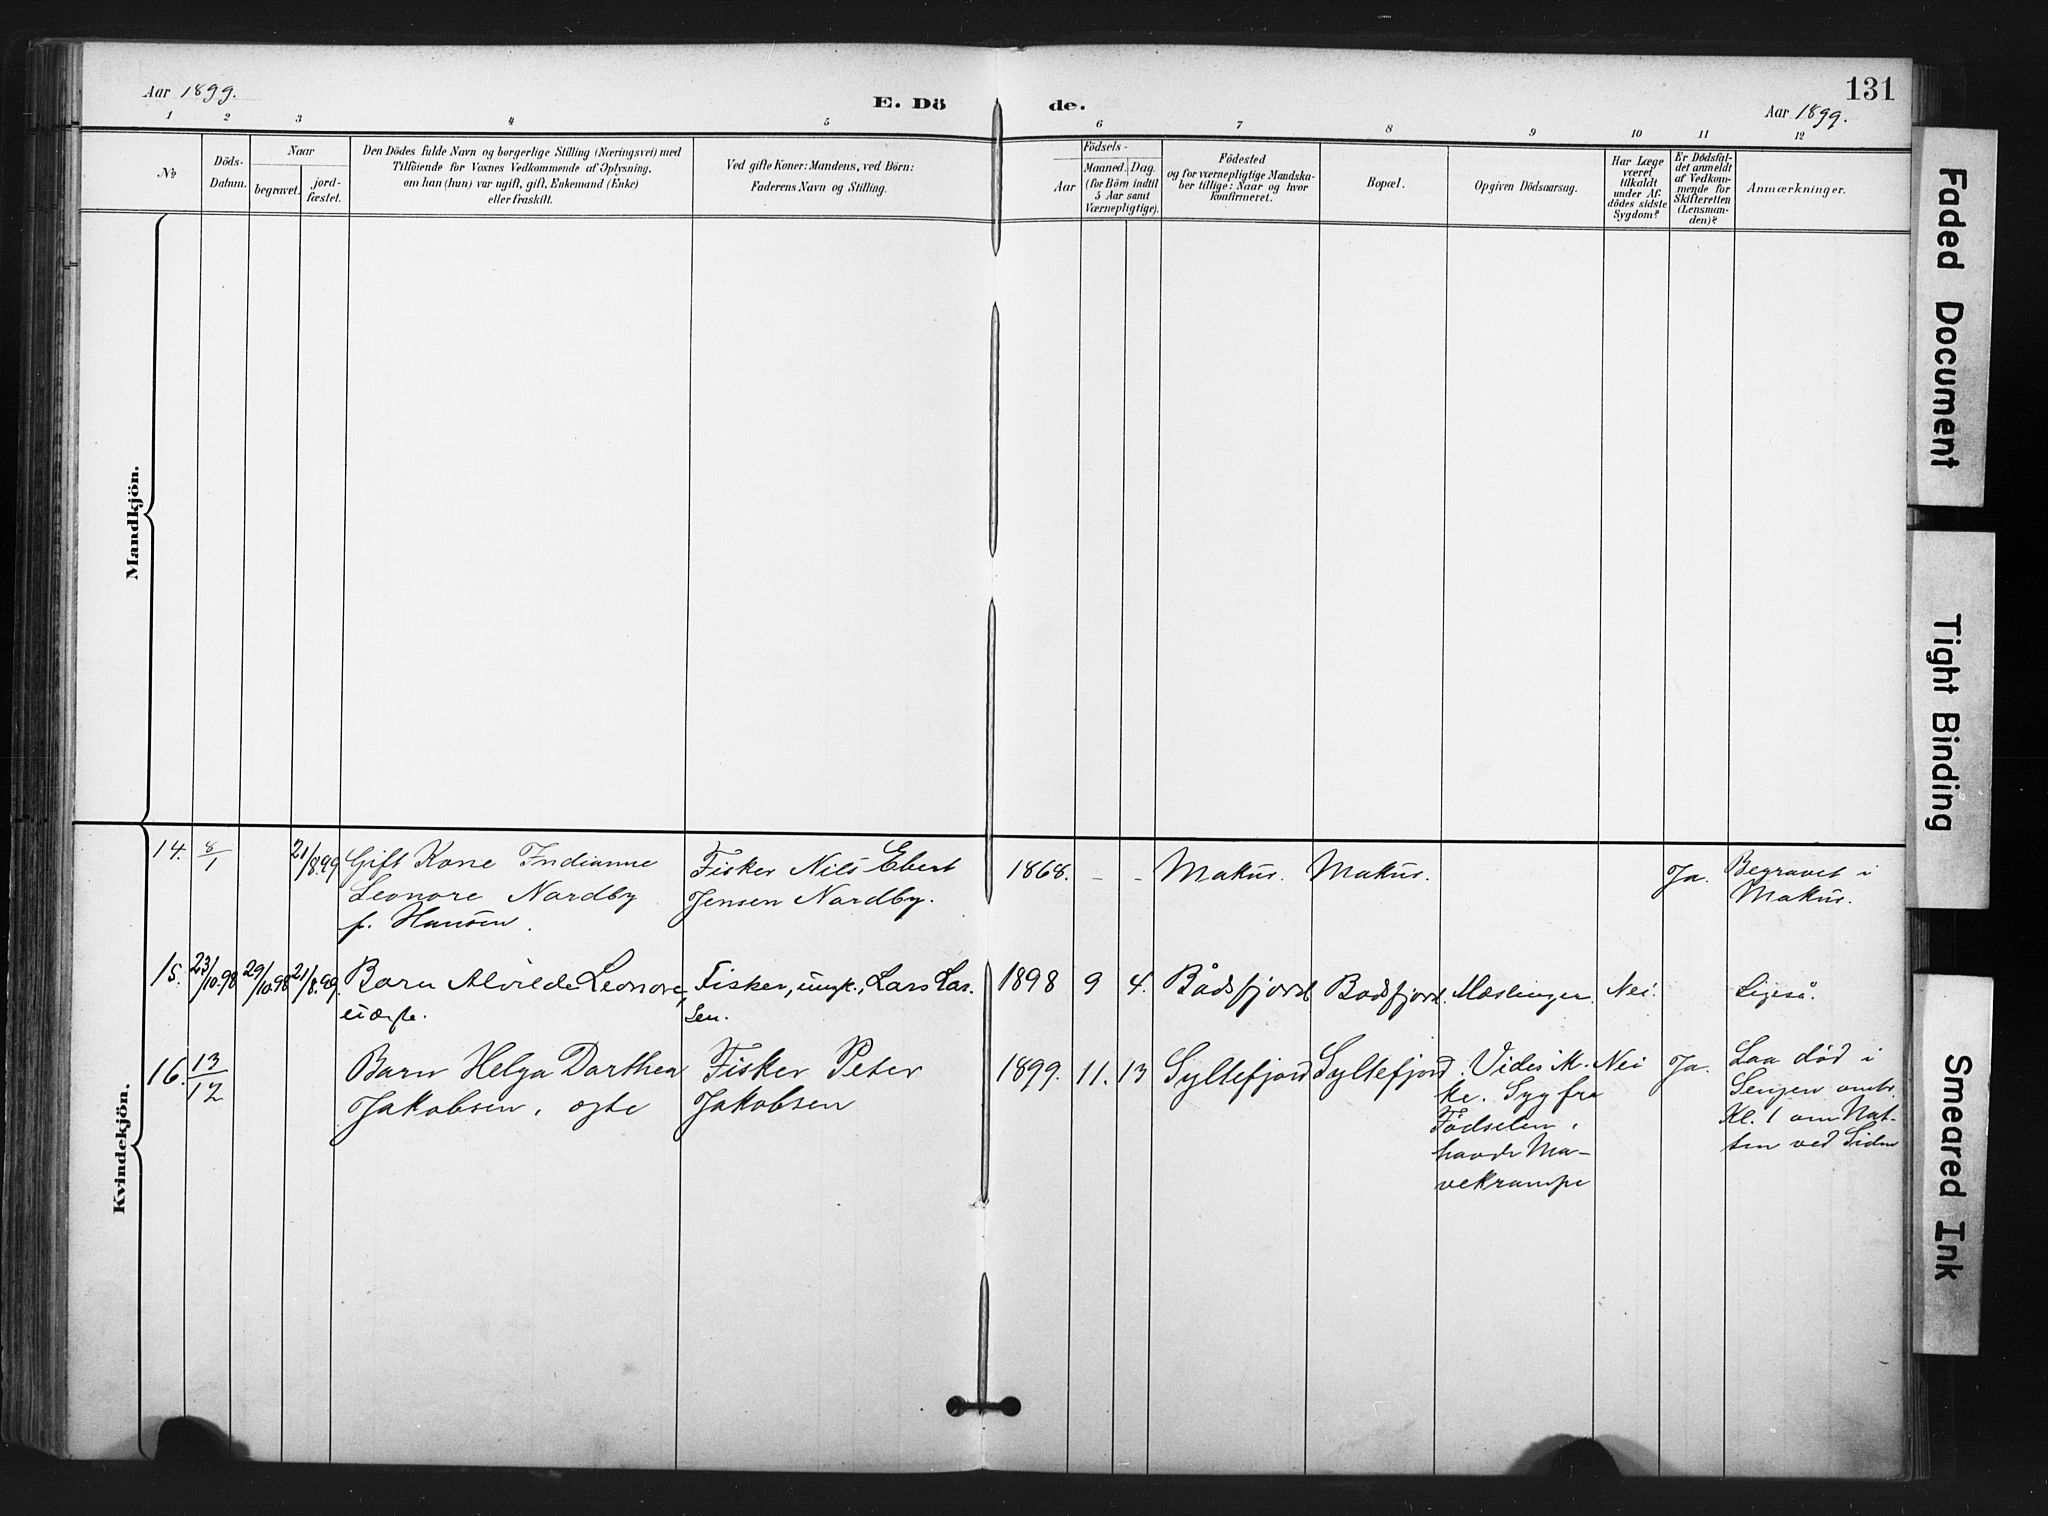 131
Aar 1899.
E. Dö de.
Aar 1899.
1 2 3 4 5 6 7 8 9 10 11 12
No
Döds-
Datum.
Naar
begravet.
jord-
fæstet.
Den Dödes fulde Navn og borgerlige Stilling (Næringsvei) med
Tilföiende for Voxnes Vedkommende af Oplysning,
om han (hun) var ugift, gift, Enkemand (Enke)
eller fraskilt.
Ved gifte Koner: Mandens, ved Börn:
Faderens Navn og Stilling.
Födsels-
Aar
Maaned. Dag.
(for Börn indtil
5 Aar samt
Værnepligtige).
Födested
og for værnepligtige Mandska-
ber tillige: Naar og hvor
konfirmeret.
Bopæl.
Opgiven Dödsaarsag.
Har Læge
været
tilkaldt
under Af-
dödes sidste
Sygdom?
Er Dödsfal-
det anmeldt
af Vedkom-
mende for
Skifteretten
(Lensman-
den)?
Anmærkninger.
Mandkjön.
Kvindekjön.
14. 8/1 21/8.99 Gift Kone Indianne Fisker Nils Ebert 1868. - - Makur. Makur. Ja. Begravet i
Leonore Nordby Jensen Nordby. Makur.
f. Hansen.
15. 23/10.98 29/10.98 21/8.99. Barn Alvilde Leonore, Fisker, ungk., Lars Lar- 1898 9 4. Bådsfjord Bodsfjord. Mæslinger. Nei. Ligeså.
uægte. sen.
16. 13/12 Barn Helga Dorthea Fisker Peter 1899. 11. 13 Syltefjord Syltefjord. Vides ik- Nei Ja. Laa død i
Jakobsen, ægte Jakobsen ke. Syg fra Sengen omtr.
Fødselen, Kl. 1 om Nat-
havde Ma- ten ved Siden
vekrampe
Faded Document
Tight Binding
Smeared Ink